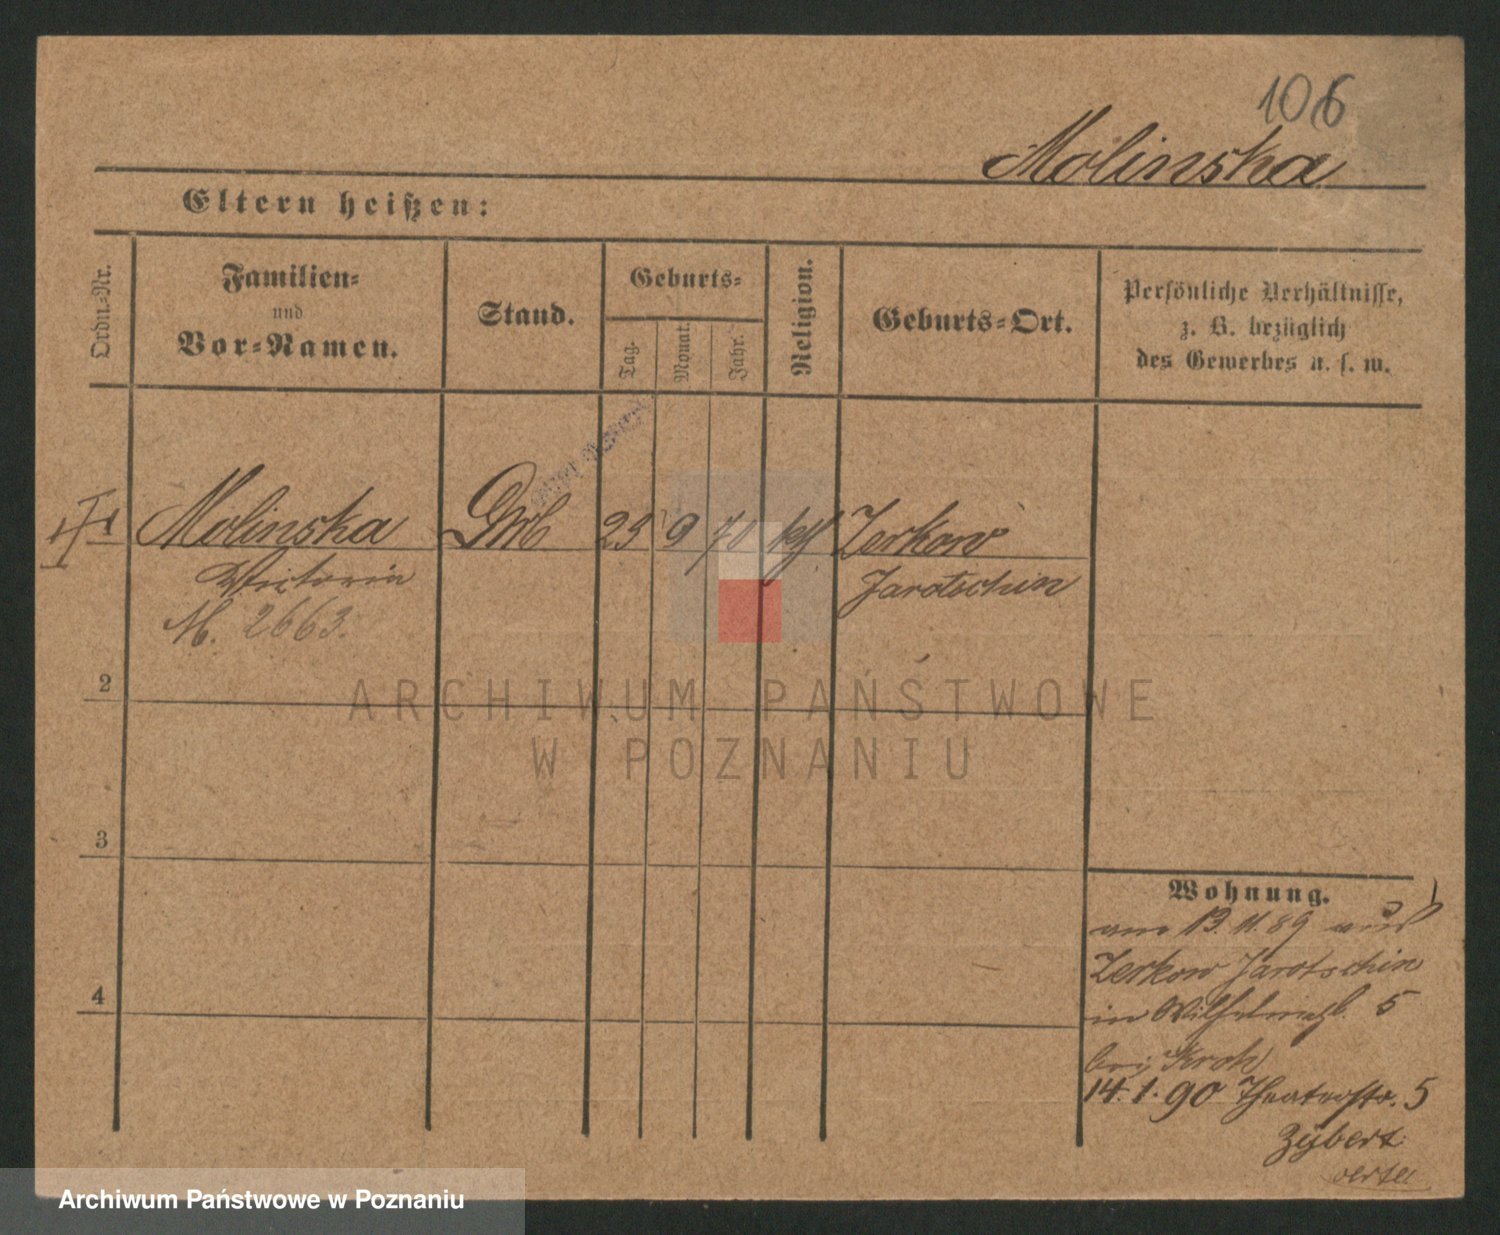 106
Molinska
Eltern heißen:
Ordn.-Nr.
Familien-
und
Vor-Namen.
Stand.
Geburts-
Tag.
Monat.
Jahr.
Religion.
Geburts-Ort.
Persönliche Verhältnisse,
z. B. bezüglich
des Gewerbes u. s. w.
1 Molinska 9 70 kth Zerkow
Victoria Jarotschin
M. 2663.
2
ARCHIWUM PAŃSTWOWE
W POZNANIU
3
Wohnung.
am 13.11.89 aus
Zerkow Jarotschin
4
in Wilhelmspl. 5
bei Kroh
14.1.90 Theaterstr. 5
Zybert
Archiwum Państwowe w Poznaniu